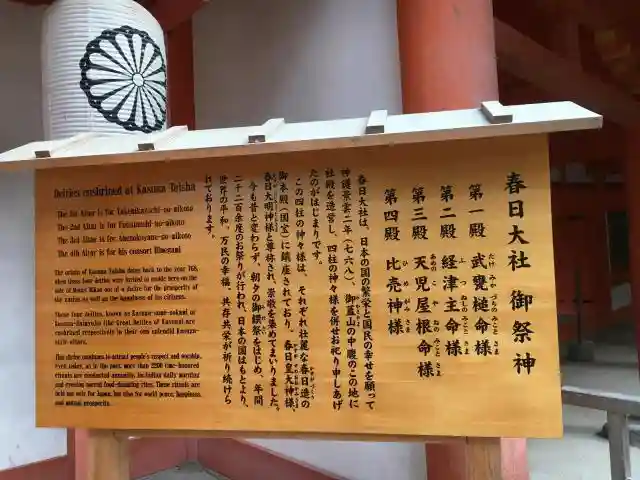 春日大社 御祭神
第一殿 武甕槌命様
たけみかづちのみことさま
第二殿 経津主命様
ふつぬしのみことさま
第三殿 天児屋根命様
あめのこやねのみことさま
第四殿 比売神様
ひめがみさま
春日大社は、日本の国の繁栄と国民の幸せを願って
神護景雲二年(七六八)、御蓋山の中腹のこの地に
社殿を造営し、四柱の神々様を併せお祀り申しあげ
たのがはじまりです。
この四柱の神々様は、それぞれ壮麗な春日造の
御本殿(国宝)に鎮座されており、春日皇大神様、
春日大明神様と尊称され、崇敬を集めてまいりました。
今も昔と変わらず、朝夕の御饌祭をはじめ、年間
二千二百余度のお祭りが行われ、日本の国はもとより、
世界の平和、万民の幸福、共存共栄が祈り続けら
れております。
Deities enshrined at Kasuga Taisha
The 1st Altar is for Takemikazuchi-no-mikoto
The 2nd Altar is for Futsunushi-no-mikoto
The 3rd Altar is for Amenokoyane-no-mikoto
The 4th Altar is for his consort Himegami
The origin of Kasuga Taisha dates back to the year 768,
when these four deities were invited to reside here on the
side of Mount Mikasa out of a desire for the prosperity of
the nation as well as the happiness of its citizens.
These four deities, known as Kasuga-sume-ookami or
Kasuga-daimyojin (the Great Deities of Kasuga) are
enshrined respectively in their own splendid Kasuga-
style altars.
This shrine continues to attract people's respect and worship.
Even today, as in the past, more than 2200 time-honored
rituals are conducted annually, including daily morning
and evening sacred food-donating rites. These rituals are
held not only for Japan, but also for world peace, happiness,
and mutual prosperity.